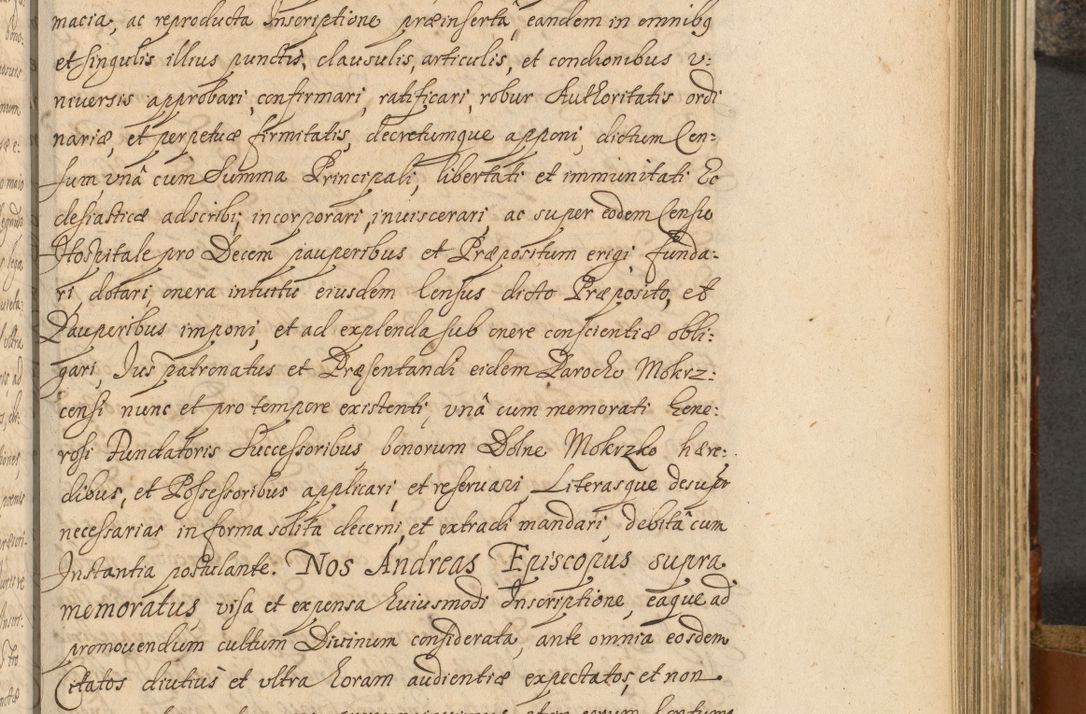 macia, ac reproducta Inscriptione præinsertâ, eandem in omnibꝫ
et singulis illius punctis, clausulis, articulis, et condionibus v:
niuersis approbari, confirmari, ratificari, robur Authoritatis ordi
nariæ, et perpetuæ firmitatis, decretumque apponi, dictum Cen:
sum vnâ cum Summa Principali, libertati et immunitati Ec
clesiasticæ adscribi, incorporari, inuiscerari, ac super eodem Censu
Hospitale pro Decem pauperibus et Præpositum erigi funda:
ri, dotari, onera intuitu eiusdem Census dicto Præposito, et
Pauperibus imponi, et ad explenda sub onere conscientiæ obli:
gari, Ius patronatus et Præsentandi eidem Parocho Mokrz:
censi nunc et pro tempore existenti, vnâ cum memorati Gene:
rosi Fundatoris Successoribus bonorum Dolne Mokrzko hære:
dibus, et Possessoribus applicari, et reseruari, Literasque desuper
necessarias in forma solita decerni, et extradi mandari, debitâ cum
Instantia postulante. Nos Andreas Episcopus supra
memoratus visa et expensa huiusmodi Inscriptione, eaque ad
promouendum cultum Diuinum considerata, ante omnia eosdem
Citatos diutius et vltra horam audientiæ expectatos, et non